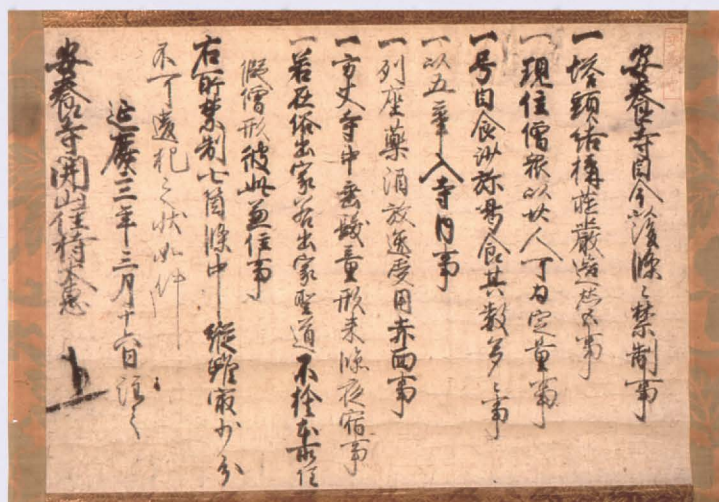 安養寺自今以後條々禁制事
一塔頭結構莊嚴過然事
一現住僧衆以廿人可為定量事
一号日食沙弥喝食其數多々事
一以五辛入寺内事
一列座藥酒放逸受用赤面事
一方丈寺中垂髮童形来臨夜宿事
一若在俗出家若出家聖道不捨本所住
假僧形彼此兼住事
右所禁制七箇條中縱雖最少分
不可違犯之状如件
延慶三年三月十六日註之
安養寺開山住持大惠